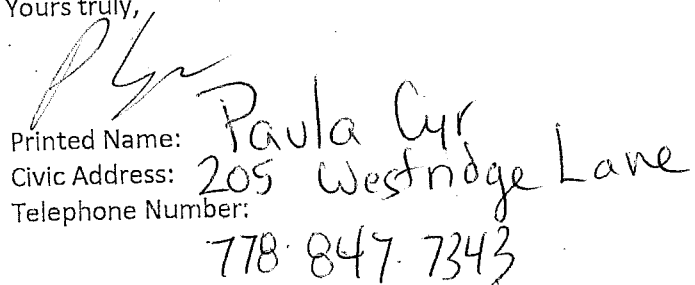 Yours truly,
Printed Name: Paula Cyr
Civic Address: 205 Westridge Lane
Telephone Number:
778. 847. 7343